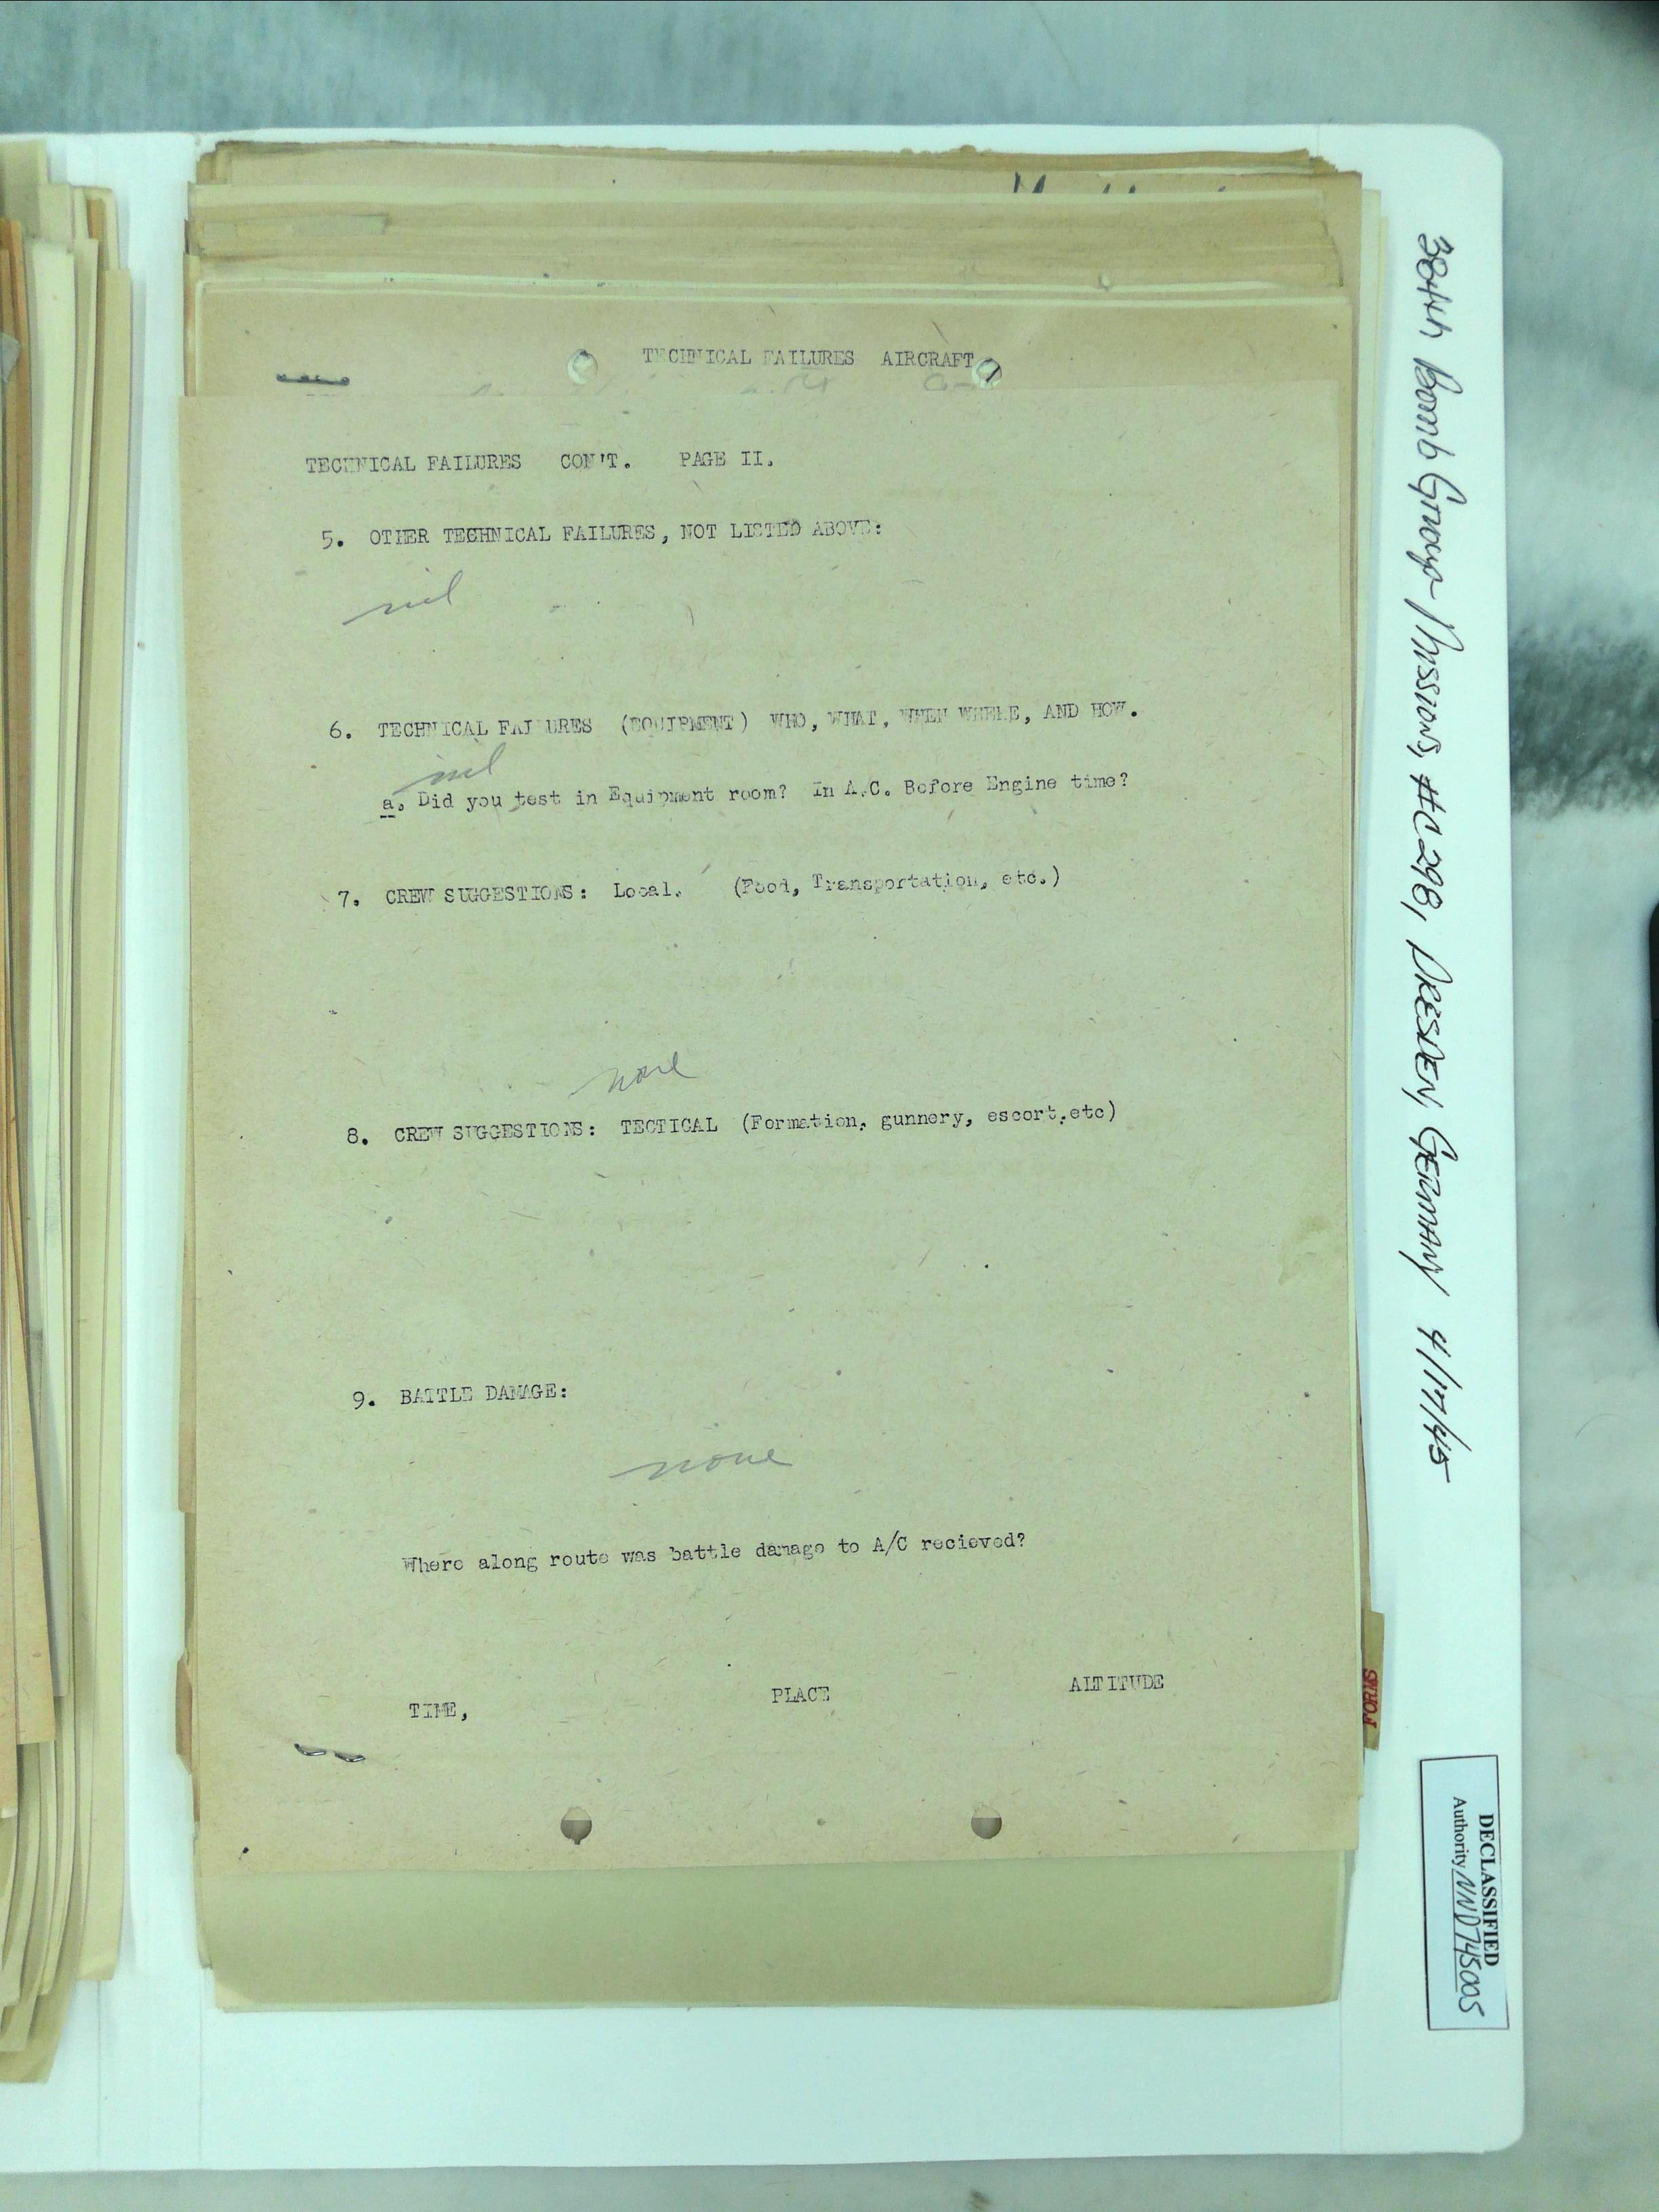 TECHNICAL FAILURES AIRCRAFT
TECHNICAL FAILURES CON'T. PAGE II.
5. OTHER TECHNICAL FAILURES, NOT LISTED ABOVE:
nil
6. TECHNICAL FAILURES (EQUIPMENT) WHO, WHAT, WHEN WHERE, AND HOW.
nil
a. Did you test in Equipment room? In A.C. Before Engine time?
7. CREW SUGGESTIONS: Local. (Food, Transportation, etc.)
none
8. CREW SUGGESTIONS: TECTICAL (Formation, gunnery, escort,etc)
9. BATTLE DAMAGE:
none
Where along route was battle damage to A/C recieved?
TIME, PLACE ALTITUDE
384th Bomb Group Missions, #C298, DRESDEN, GERMANY 4/17/45
FORMS
DECLASSIFIED
Authority NND745005